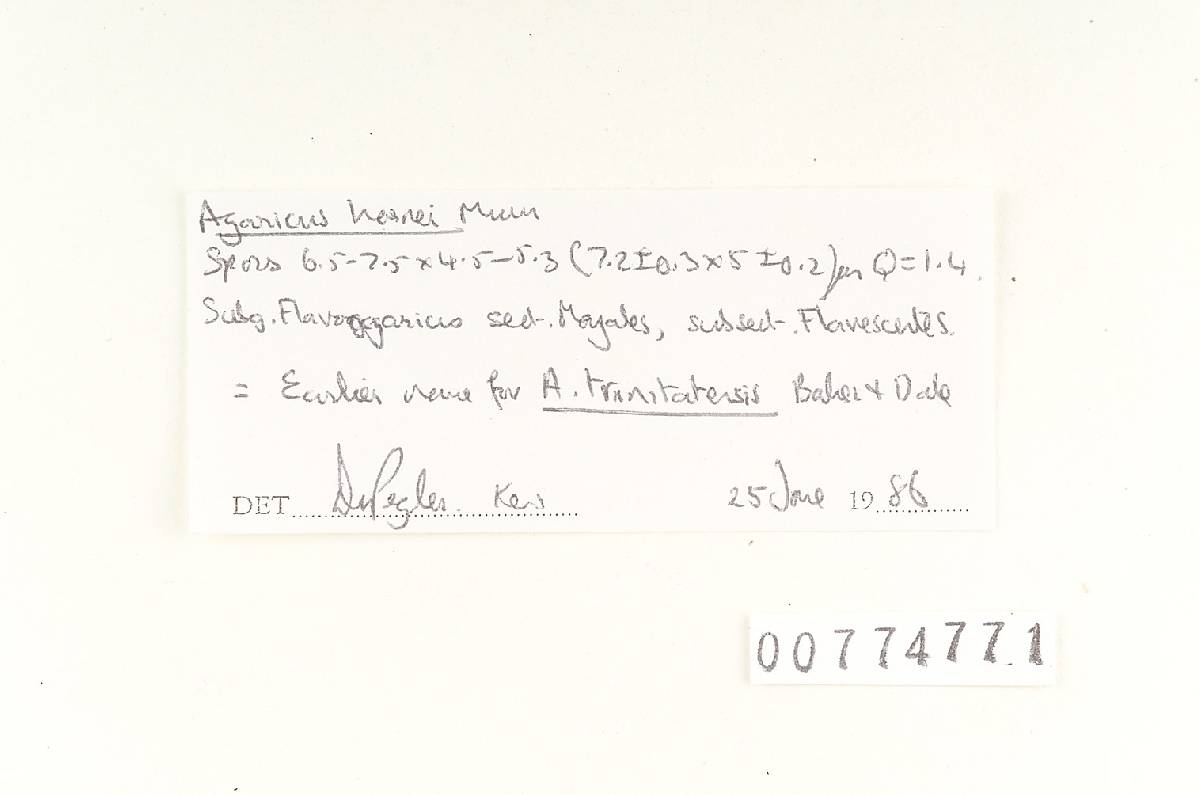 Agaricus hornei Murr
Spores 6.5-7.5 x 4.5-5.3 (7.2±0.3 x 5±0.2) µm Q=1.4.
Subg. Flavoagaricus sect. Majales, subsect. Flavescentes.
= Earlier name for A. trinitatensis Baker & Dale
DET DNPegler Kew 25 June 19 86
00774771